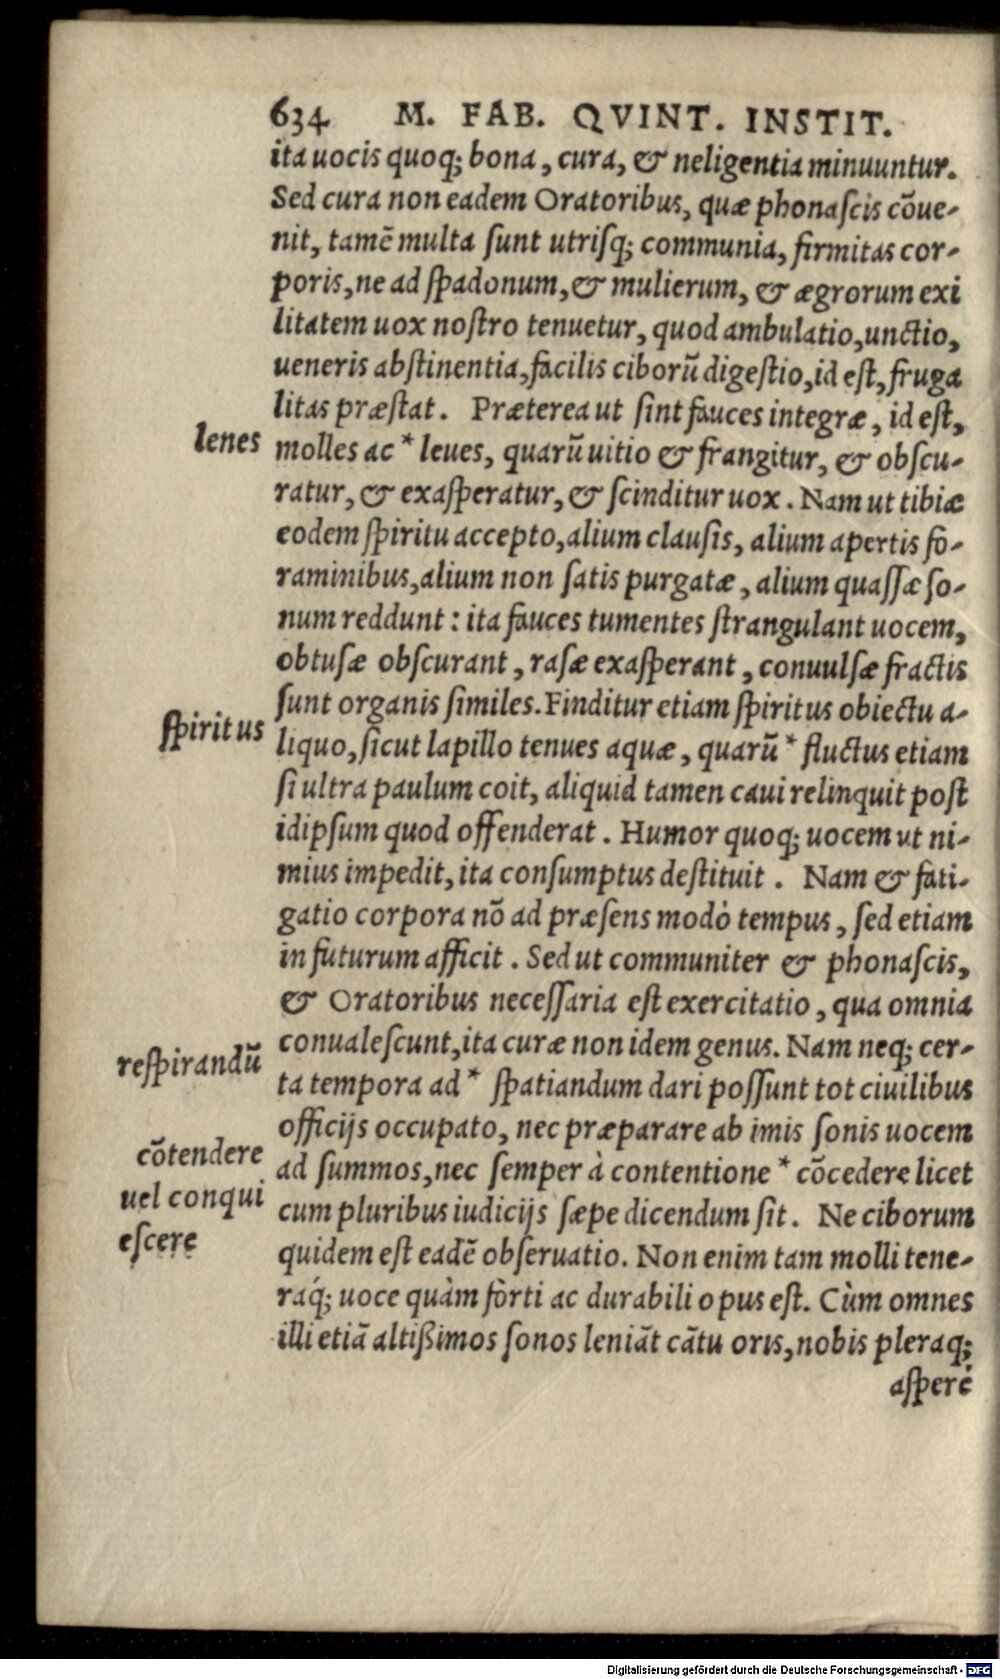 634 M. FAB. QVINT. INSTIT.
ita uocis quoq; bona, cura, & neligentia minuuntur.
Sed cura non eadem Oratoribus, quæ phonaſcis cõue-
nit, tamẽ multa ſunt utriſq; communia, firmitas cor-
poris, ne ad ſpadonum, & mulierum, & ægrorum exi
litatem uox noſtro tenuetur, quod ambulatio, unctio,
ueneris abſtinentia, facilis ciborũ digeſtio, id eſt, fruga
litas præſtat. Præterea ut ſint fauces integræ, id eſt,
lenes
molles ac * leues, quarũ uitio & frangitur, & obſcu-
ratur, & exaſperatur, & ſcinditur uox. Nam ut tibiæ
eodem ſpiritu accepto, alium clauſis, alium apertis fo-
raminibus, alium non ſatis purgatæ, alium quaſſæ ſo-
num reddunt: ita fauces tumentes ſtrangulant uocem,
obtuſæ obſcurant, raſæ exaſperant, conuulſæ fractis
ſunt organis ſimiles. Finditur etiam ſpiritus obiectu a-
ſpiritus
liquo, ſicut lapillo tenues aquæ, quarũ * fluctus etiam
ſi ultra paulum coit, aliquid tamen caui relinquit poſt
idipſum quod offenderat. Humor quoq; uocem ut ni-
mius impedit, ita conſumptus deſtituit. Nam & fati-
gatio corpora nõ ad præſens modò tempus, ſed etiam
in futurum afficit. Sed ut communiter & phonaſcis,
& Oratoribus neceſſaria eſt exercitatio, qua omnia
conualeſcunt, ita curæ non idem genus. Nam neq; cer-
reſpirandũ
ta tempora ad * ſpatiandum dari poſſunt tot ciuilibus
officijs occupato, nec præparare ab imis ſonis uocem
cõtendere
ad ſummos, nec ſemper à contentione * cõcedere licet
uel conqui
cum pluribus iudicijs ſæpe dicendum ſit. Ne ciborum
eſcere
quidem eſt eadẽ obſeruatio. Non enim tam molli tene-
raq́; uoce quàm fòrti ac durabili opus eſt. Cùm omnes
illi etiã altißimos ſonos leniãt cãtu oris, nobis pleraq;
aſperè
Digitalisierung gefördert durch die Deutsche Forschungsgemeinschaft - DFG